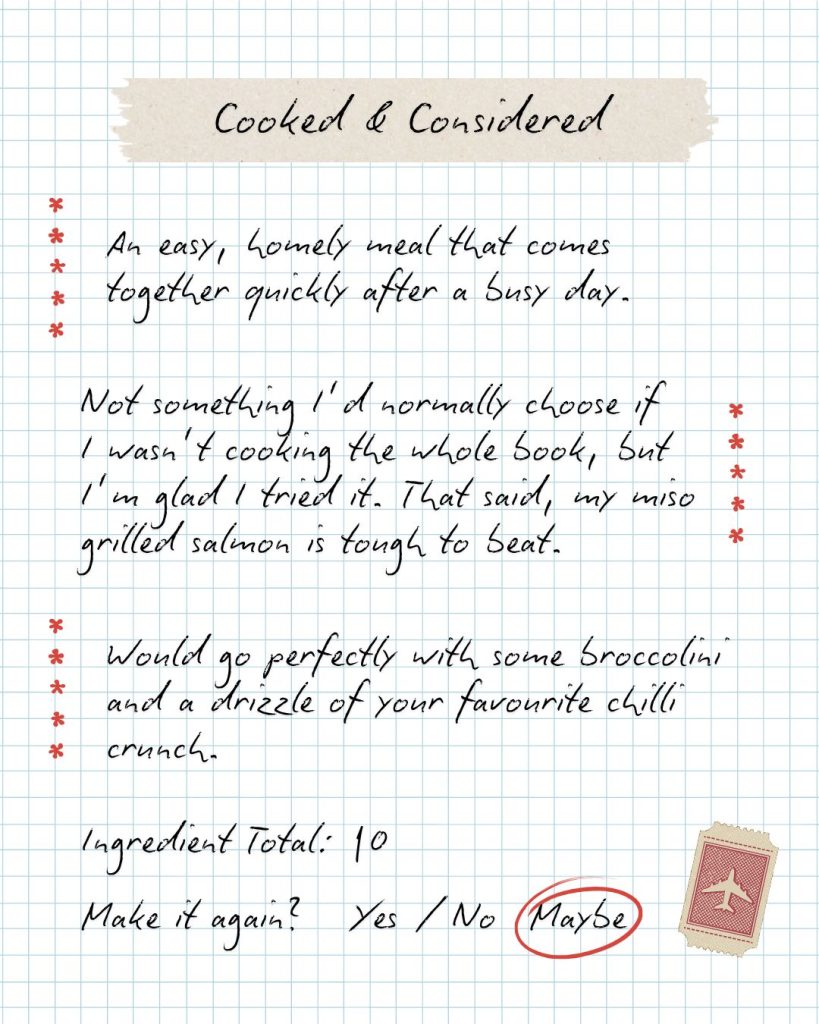 Cooked & Considered
An easy, homely meal that comes
together quickly after a busy day.
Not something I'd normally choose if
I wasn't cooking the whole book, but
I'm glad I tried it. That said, my miso
grilled salmon is tough to beat.
Would go perfectly with some broccolini
and a drizzle of your favourite chilli
crunch.
Ingredient Total: 10
Make it again? Yes / No Maybe